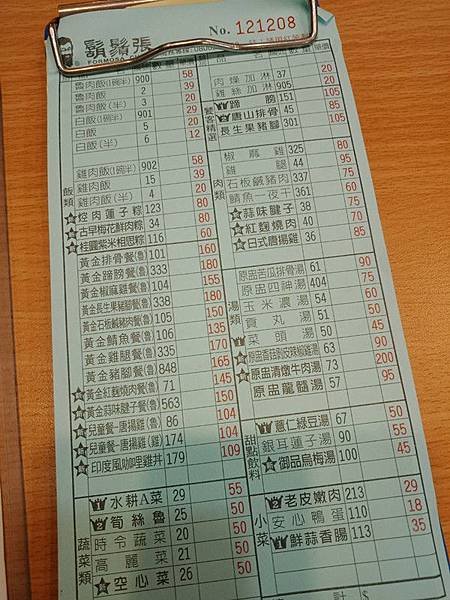 鬍鬚張
FORMOSA
No. 121208
魯肉飯(1碗半) 900 58
魯肉飯 2 39
魯肉飯(半) 3 20
白飯(1碗半) 901 29
白飯 5 20
白飯(半) 6 12
飯類
雞肉飯(1碗半) 902 58
雞肉飯 15 39
雞肉飯(半) 4 20
焢肉蓮子粽 123 80
古早梅花鮮肉粽 34 80
桂圓紫米相思粽 116 60
黃金排骨餐(魯) 101 160
黃金蹄膀餐(魯) 333 180
黃金椒麻雞餐(魯) 104 155
黃金長生果豬腳餐(魯) 338 180
黃金石板鹹豬肉餐(魯) 105 150
黃金鯖魚餐(魯) 106 135
黃金雞腿餐(魯) 335 170
黃金豬腳餐(魯) 848 165
黃金紅麴燒肉餐(魯) 71 145
黃金蒜味腱子餐(魯) 563 150
兒童餐-唐揚雞(魯) 86 104
兒童餐-唐揚雞(雞) 174 104
印度風咖哩雞丼 179 109
蔬菜類
1 水耕A菜 29 55
2 筍絲魯 25 50
時令蔬菜 20 50
高麗菜 21 50
空心菜 26 50
饕客精選
肉燥加淋 37 20
雞絲加淋 905 20
1 蹄膀 151 105
2 唐山排骨 45 85
長生果豬腳 301 105
肉類
椒麻雞 325 80
雞腿 44 95
石板鹹豬肉 337 75
鯖魚一夜干 361 60
蒜味腱子 38 75
紅麴燒肉 40 70
日式唐揚雞 36 85
湯類
原盅苦瓜排骨湯 61 90
原盅四神湯 404 75
玉米濃湯 54 60
貢丸湯 51 50
菜頭湯 50 45
原盅香菇剝皮辣椒雞湯 63 90
原盅清燉牛肉湯 73 200
原盅龍髓湯 57 95
甜點飲料
薏仁綠豆湯 67 50
銀耳蓮子湯 90 55
御品烏梅湯 100 45
小菜
2 老皮嫩肉 213 29
安心鴨蛋 110 18
1 鮮蒜香腸 113 35
計 $